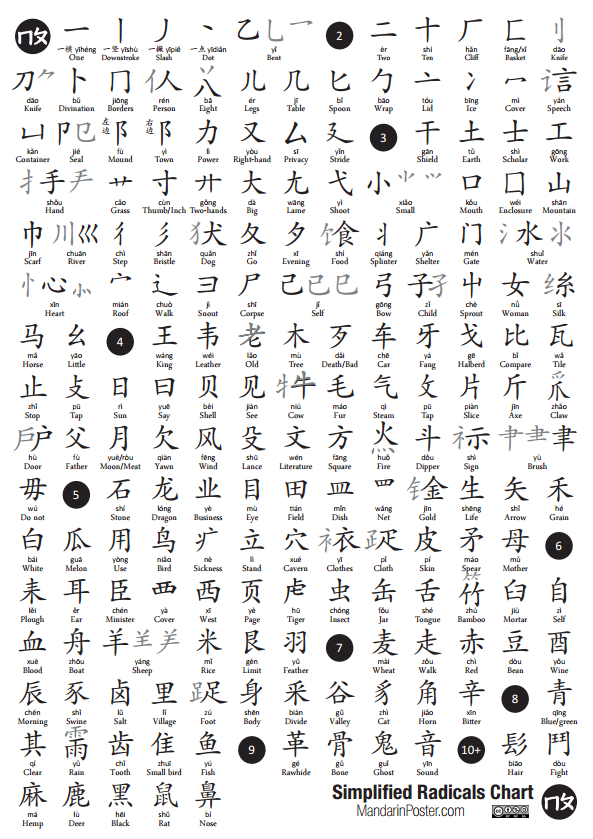 一 丨 丿 丶 乙乚乛 2 二 十 厂 匚 刂
一横 yīhéng 一竖 yīshù 一撇 yīpiě 一点 yīdiǎn yǐ èr shí hǎn fāng/xǐ dāo
One Downstroke Slash Dot Bent Two Ten Cliff Basket Knife
刀⺈ 卜 冂 亻人 丷八 儿 几 匕 勹 亠 冫 冖 讠言
dāo bǔ jiōng rén bā ér jī bǐ bāo tóu bīng mì yán
Knife Divination Borders Person Eight Legs Table Spoon Wrap Lid Ice Cover Speech
凵 卩㔾 左边 阝 右边 阝 力 又 厶 廴 3 干 土 士 工
kǎn jié fù yì lì yòu sī yǐn gān tǔ shì gōng
Container Seal Mound Town Power Right-hand Privacy Stride Shield Earth Scholar Work
扌手龵 艹 寸 廾 大 尢 弋 小⺌⺍ 口 囗 山
shǒu cǎo cùn gǒng dà wāng yì xiǎo kǒu wéi shān
Hand Grass Thumb/Inch Two-hands Big Lame Shoot Small Mouth Enclosure Mountain
巾 川巛 彳 彡 犭犬 夂 夕 饣食 丬 广 门 氵水氺
jīn chuān chì shān quǎn zhǐ xī shí qiáng yǎn mén shuǐ
Scarf River Step Bristle Dog Go Evening Food Splinter Shelter Gate Water
忄心⺗ 宀 辶 彐 尸 己已巳 弓 子孑 屮 女 纟糸
xīn mián chuò jì shī jǐ gōng zǐ chè nǚ sī
Heart Roof Walk Snout Corpse Self Bow Child Sprout Woman Silk
马 幺 4 王 韦 老 木 歹 车 牙 戈 比 瓦
mǎ yāo wáng wéi lǎo mù dǎi chē yá gē bǐ wǎ
Horse Little King Leather Old Tree Death/Bad Car Fang Halberd Compare Tile
止 攴 日 曰 贝 见 牜牛 毛 气 攵 片 斤 爫爪
zhǐ pū rì yuē bèi jiàn niú máo qì pū piàn jīn zhǎo
Stop Tap Sun Say Shell See Cow Fur Steam Tap Slice Axe Claw
戶户 父 月 欠 风 殳 文 方 火灬 斗 礻示 肀⺻聿
hù fù yuè/ròu qiàn fēng shū wén fāng huǒ dǒu shì yù
Door Father Moon/Meat Yawn Wind Lance Literature Square Fire Dipper Sign Brush
毋 5 石 龙 业 目 田 皿 罒 钅金 生 矢 禾
wú shí lóng yè mù tián mǐn wǎng jīn shēng shǐ hé
Do not Stone Dragon Business Eye Field Dish Net Gold Life Arrow Grain
白 瓜 用 鸟 疒 立 穴 衤衣 疋 皮 矛 母 6
bái guā yòng niǎo nè lì xué yī pǐ pí máo mǔ
White Melon Use Bird Sickness Stand Cavern Clothes Cloth Skin Spear Mother
耒 耳 臣 覀 西 页 虍 虫 缶 舌 竹 臼 自
lěi ěr chén yà xī yè hū chóng fǒu shé zhú jiù zì
Plough Ear Minister Cover West Page Tiger Insect Jar Tongue Bamboo Mortar Self
血 舟 羊⺶⺷ 米 艮 羽 7 麦 走 赤 豆 酉
xuè zhōu yáng mǐ gèn yǔ mài zǒu chì dòu yǒu
Blood Boat Sheep Rice Limit Feather Wheat Walk Red Bean Wine
辰 豕 卤 里 足 身 釆 谷 豸 角 辛 8 青
chén shǐ lǔ lǐ zú shēn biàn gǔ zhì jiǎo xīn qīng
Morning Swine Salt Village Foot Body Divide Valley Cat Horn Bitter Blue/green
其 雨 齿 隹 鱼 9 革 骨 鬼 音 10+ 髟 鬥
qí yǔ chǐ zhuī yú gé gǔ guǐ yīn biāo dòu
Clear Rain Tooth Small bird Fish Rawhide Bone Ghost Sound Hair Fight
麻 鹿 黑 鼠 鼻
má lù hēi shǔ bí
Hemp Deer Black Rat Nose
Simplified Radicals Chart
MandarinPoster.com